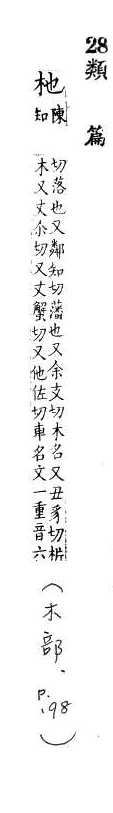 28類篇
杝
陳知
切落也又鄰知切藩也又余支切木名又丑豸切析
木又丈尒切又丈蟹切又他佐切車名文一重音六
(木部、P.198)